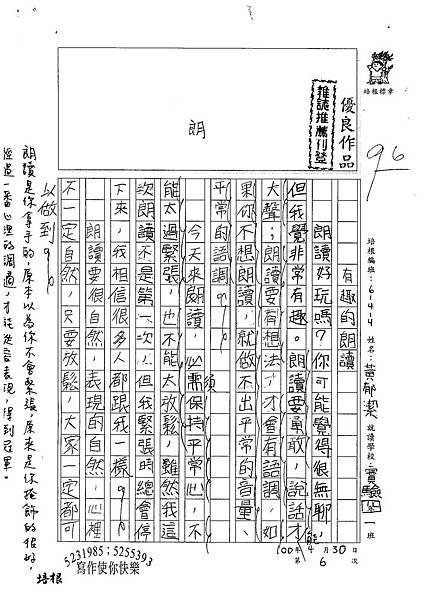 培根標章
優良作品
推薦刊登
96
朗
培根編班：614-4 姓名：黃郁潔 就讀學校：實驗國小一班
100年4月30日
第6次
有趣的朗讀
朗讀好玩嗎？你可能覺得很無聊，
但我覺得非常有趣。朗讀要勇敢，說話才能
大聲；朗讀要有想法，才會有語調，如
果你不想朗讀，就做不出平常的音量、
平常的語調。
今天來朗讀，必須保持平常心，不
能太過緊張，也不能太放鬆，雖然我這
次朗讀不是第一次，但我緊張時總會停
下來，我相信很多人都跟我一樣。
朗讀要很自然，表現的自然，心裡
不一定自然，只要放鬆，大家一定都可
以做到。
朗讀是你拿手的，原本以為你不會緊張，原來是你掩飾的很好，
經過一番心理的調適，才能從容表現，得到冠軍。
5231985；5255393
寫作使你快樂
培根